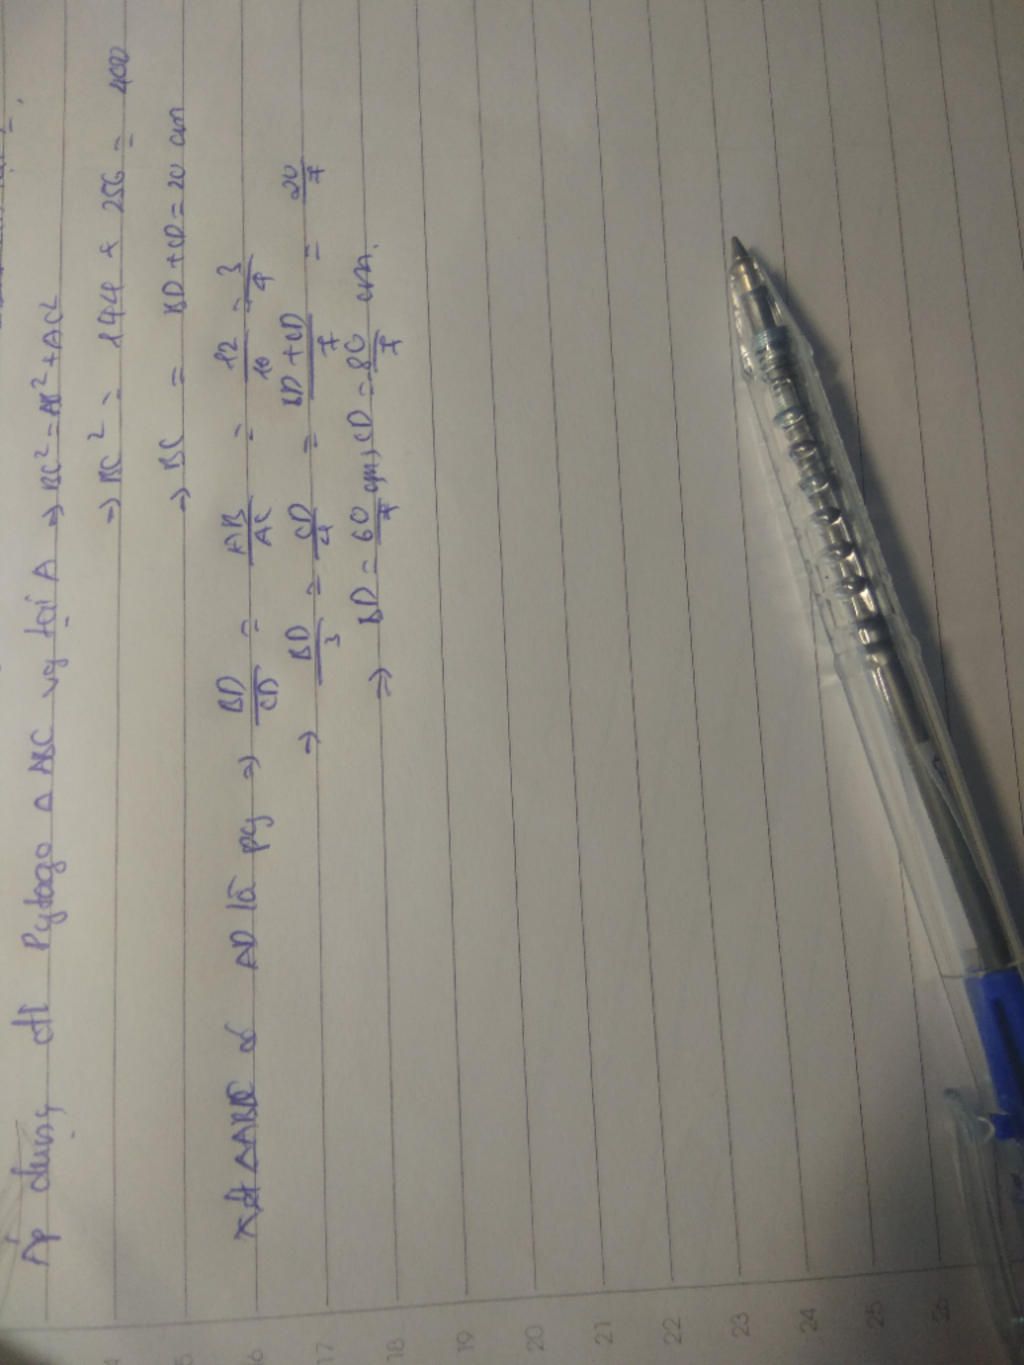 Áp dụng đl Pytago Δ ABC vg tại A ⇒ BC² = AB² + AC²
⇒ BC² = 144 + 256 = 400
⇒ BC = BD + CD = 20 cm
Xét ΔABC có AD là pg ⇒ BD/CD = AB/AC = 12/16 = 3/4
⇒ BD/3 = CD/4 = BD + CD/7 = 20/7
⇒ BD = 60/7 cm, CD = 80/7 cm.
17
18
19
20
21
22
23
24
25
26